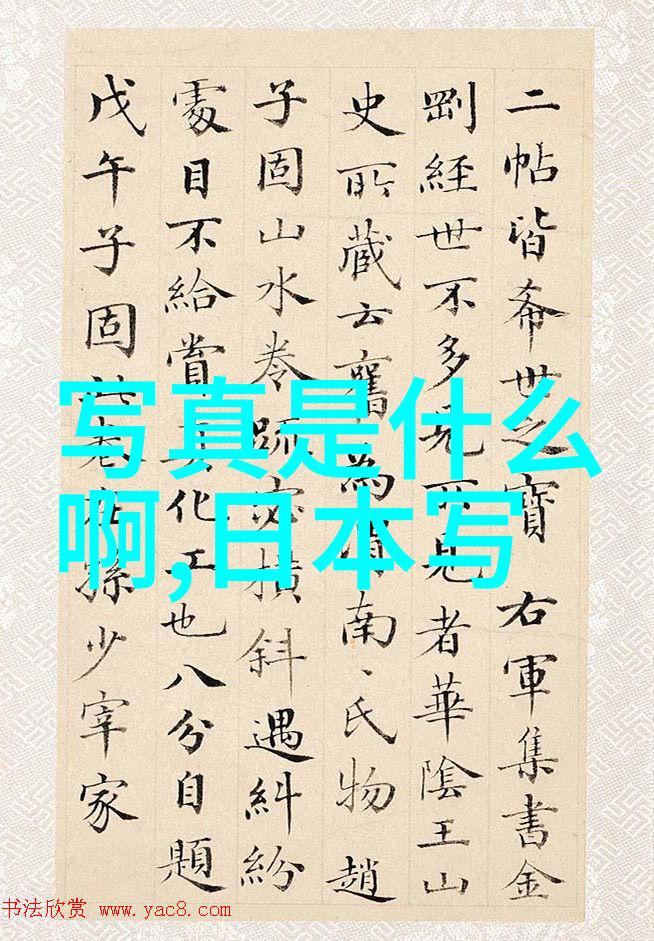 二帖皆希世之寶 右軍集書金
剛經世不多見所見者華陰王山
史所藏云舊為南、氏物趙
子固山水卷踈宻橫斜遇糾紛
處目不給賞真化工也八分自題
戊午子固此卷在孫少宰家
写真是什么
啊,日本写
书法欣赏 www.yac8.com